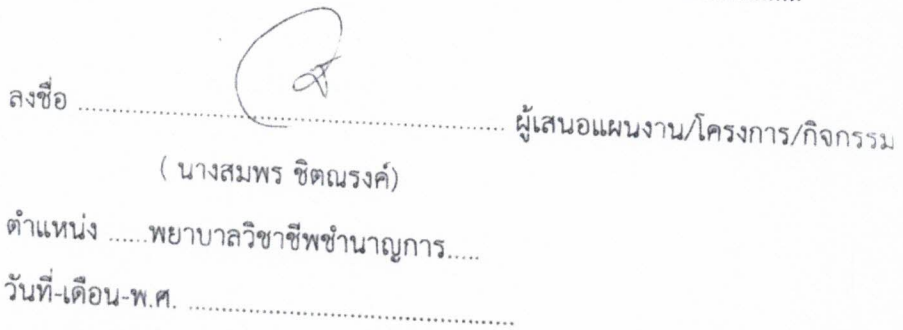 ลงชื่อ ........................................ ผู้เสนอแผนงาน/โครงการ/กิจกรรม
( นางสมพร ชิตณรงค์)
ตำแหน่ง ......พยาบาลวิชาชีพชำนาญการ.....
วันที่-เดือน-พ.ศ. ........................................